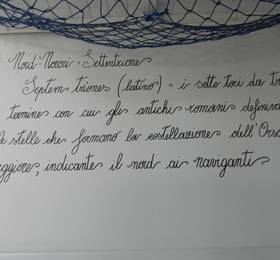 Nord-Norori = Settentrione
Septem triones (latino) = i sette tori da tr
termine con cui gli antichi romani definiva
le stelle che formano la costellazione dell'Ors
aggiore, indicante il nord ai naviganti